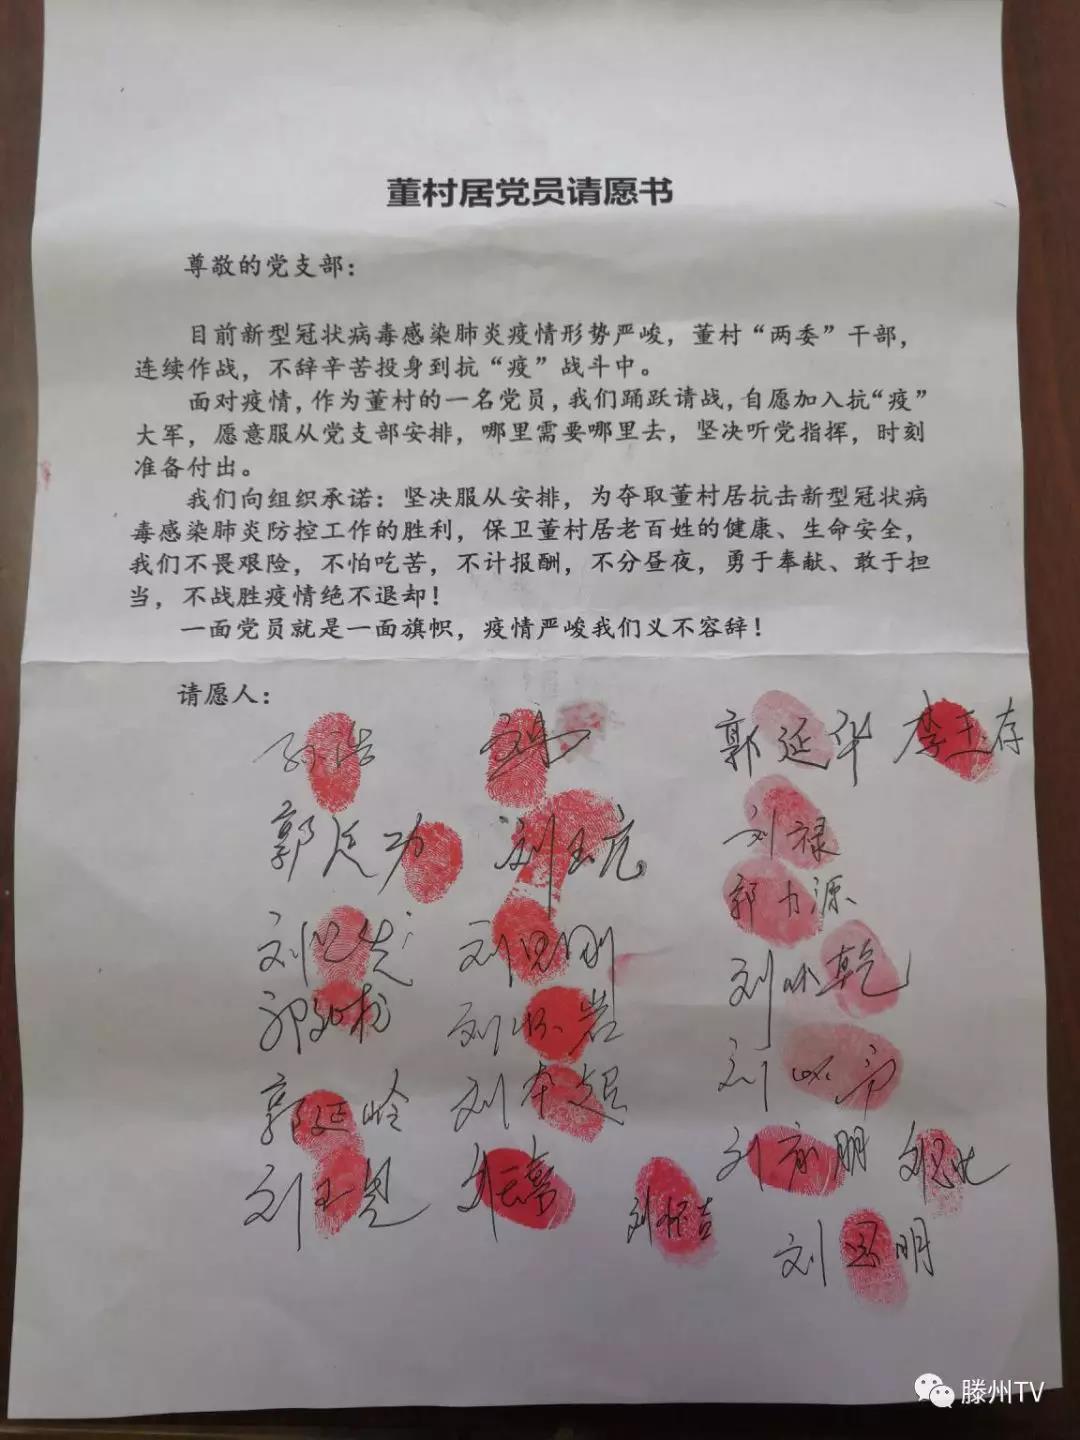 董村居党员请愿书
尊敬的党支部：
目前新型冠状病毒感染肺炎疫情形势严峻，董村“两委”干部，
连续作战，不辞辛苦投身到抗“疫”战斗中。
面对疫情，作为董村的一名党员，我们踊跃请战，自愿加入抗“疫”
大军，愿意服从党支部安排，哪里需要哪里去，坚决听党指挥，时刻
准备付出。
我们向组织承诺：坚决服从安排，为夺取董村居抗击新型冠状病
毒感染肺炎防控工作的胜利，保卫董村居老百姓的健康、生命安全，
我们不畏艰险，不怕吃苦，不计报酬，不分昼夜，勇于奉献、敢于担
当，不战胜疫情绝不退却！
一面党员就是一面旗帜，疫情严峻我们义不容辞！
请愿人：
孙浩 郭延华 李玉存
郭廷功 刘玉亮 刘禄
郭力源
刘 刘 刚 刘 乾
郭 松 刘 岩
郭延岭 刘本超 刘
刘玉 刘 朋
刘怀吉
刘 明
滕州TV